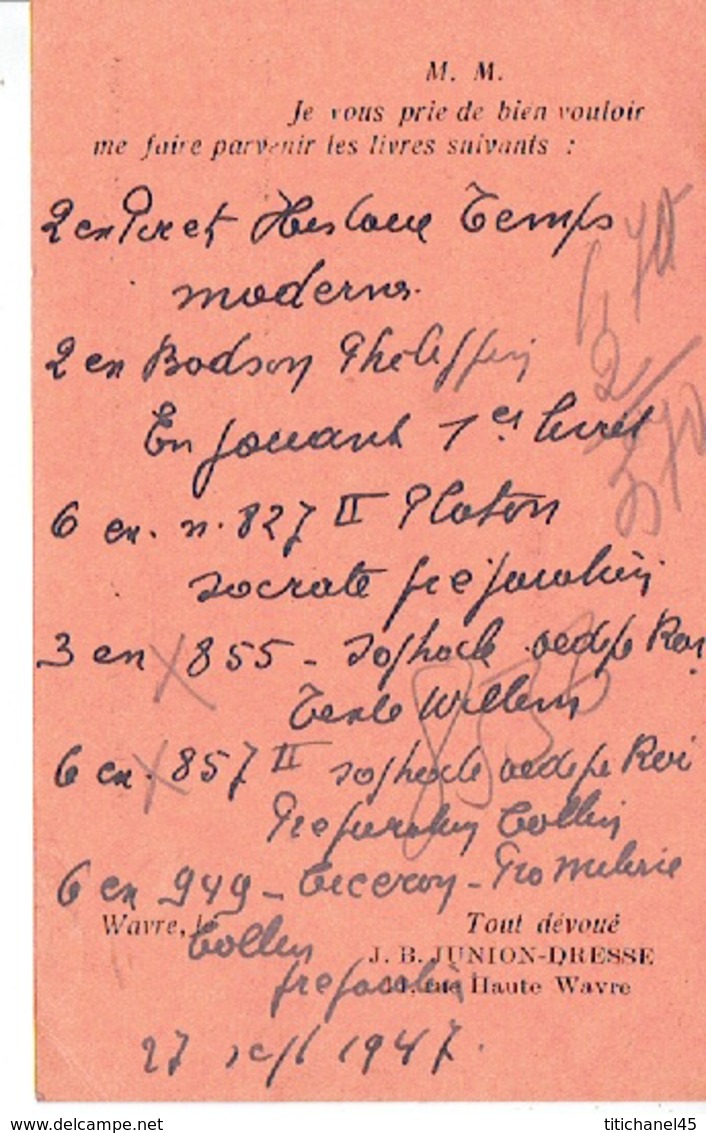 M. M.
Je vous prie de bien vouloir
me faire parvenir les livres suivants :
2 ex Piret Histoire Temps
modernes.
2 ex Bodson
En jouant 1er livret
6 ex. n. 827 II Platon
Socrate préparation
3 ex 855 - Sophocle Oedipe Roi
Texte Willem
6 ex. 857 II Sophocle Oedipe Roi
Préparation Collin
6 ex 949 - Ciceron - Pro Milone
Wavre, le Tout dévoué
Collin J. B. JUNION-DRESSE
préparation rue Haute Wavre
27 sept 1947.
titichanel45